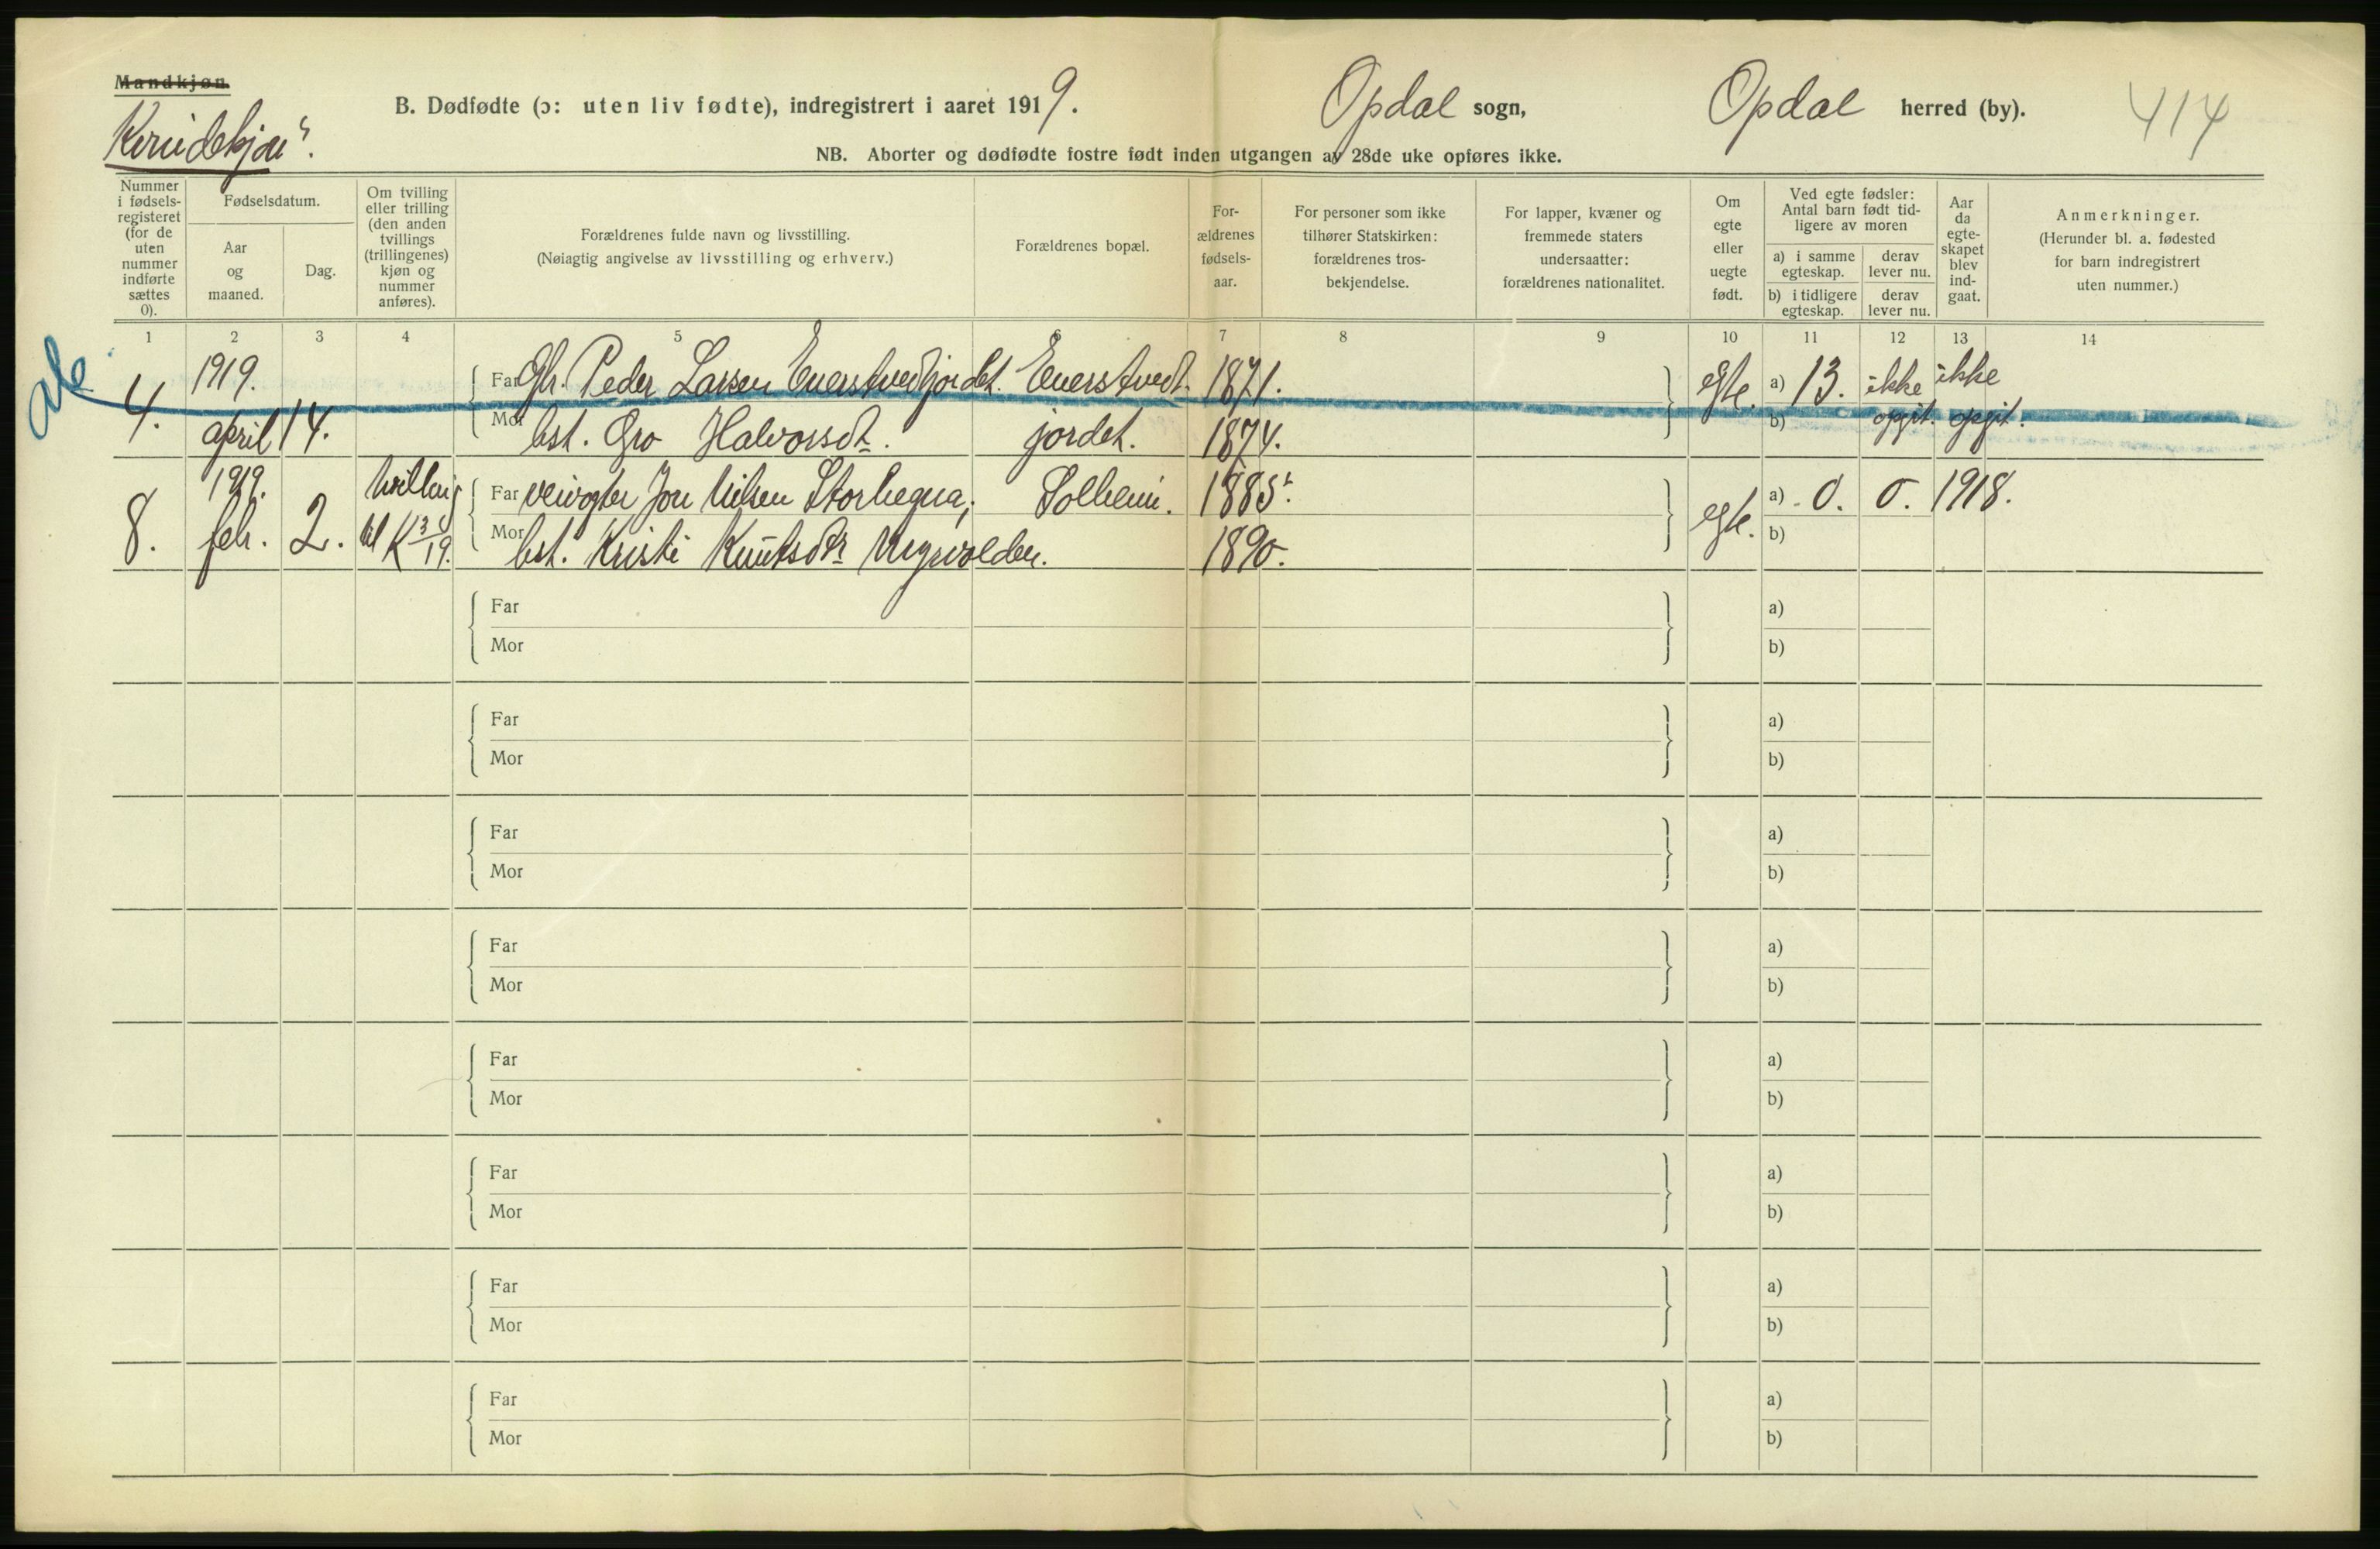 Mandkjøn.
Kvindekjøn.
B. Dødfødte (ɔ: uten liv fødte), indregistrert i aaret 1919.
Opdal sogn,
Opdal herred (by).
414
NB. Aborter og dødfødte fostre født inden utgangen av 28de uke opføres ikke.
Nummer
i fødsels-
registeret
(for de
uten
nummer
indførte
sættes
0).
Fødselsdatum.
Aar
og
maaned.
Dag.
Om tvilling
eller trilling
(den anden
tvillings
(trillingenes)
kjøn og
nummer
anføres).
Forældrenes fulde navn og livsstilling.
(Nøiagtig angivelse av livsstilling og erhverv.)
Forældrenes bopæl.
For-
ældrenes
fødsels-
aar.
For personer som ikke
tilhører Statskirken:
forældrenes tros-
bekjendelse.
For lapper, kvæner og
fremmede staters
undersaatter:
forældrenes nationalitet.
Om
egte
eller
uegte
født.
Ved egte fødsler:
Antal barn født tid-
ligere av moren
a) i samme
egteskap.
derav
lever nu.
b) i tidligere
egteskap.
derav
lever nu.
Aar
da
egte-
skapet
blev
ind-
gaat.
Anmerkninger.
(Herunder bl. a. fødested
for barn indregistrert
uten nummer.)
1 2 3 4 5 6 7 8 9 10 11 12 13 14
4.
1919.
april 14.
Far Gbr. Peder Larsen Enerstvedtjordet. Enerstvedt- 1871.
Mor hst. Gro Halvorsdt. jordet. 1874.
egte. a) 13. ikke ikke
b) opgit. opgit.
8.
1919.
febr. 2.
tvilling
til K 3/19.
Far veivogter Jon Nilsen Storhegna, Solheim. 1885.
Mor hst. Kristi Knutsdtr 1890.
egte. a) 0. 0. 1918.
b)
Far a)
Mor b)
Far a)
Mor b)
Far a)
Mor b)
Far a)
Mor b)
Far a)
Mor b)
Far a)
Mor b)
Far a)
Mor b)
Far a)
Mor b)